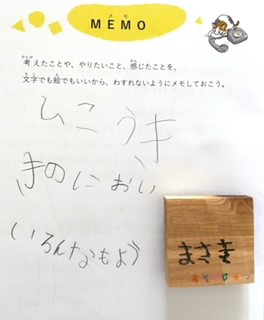 メモ
MEMO
かんが かん
考えたことや、やりたいこと、感じたことを、
もじ え
文字でも絵でもいいから、わすれないようにメモしておこう。
ひこうき
きのにおい
いろんなもよう
まさき